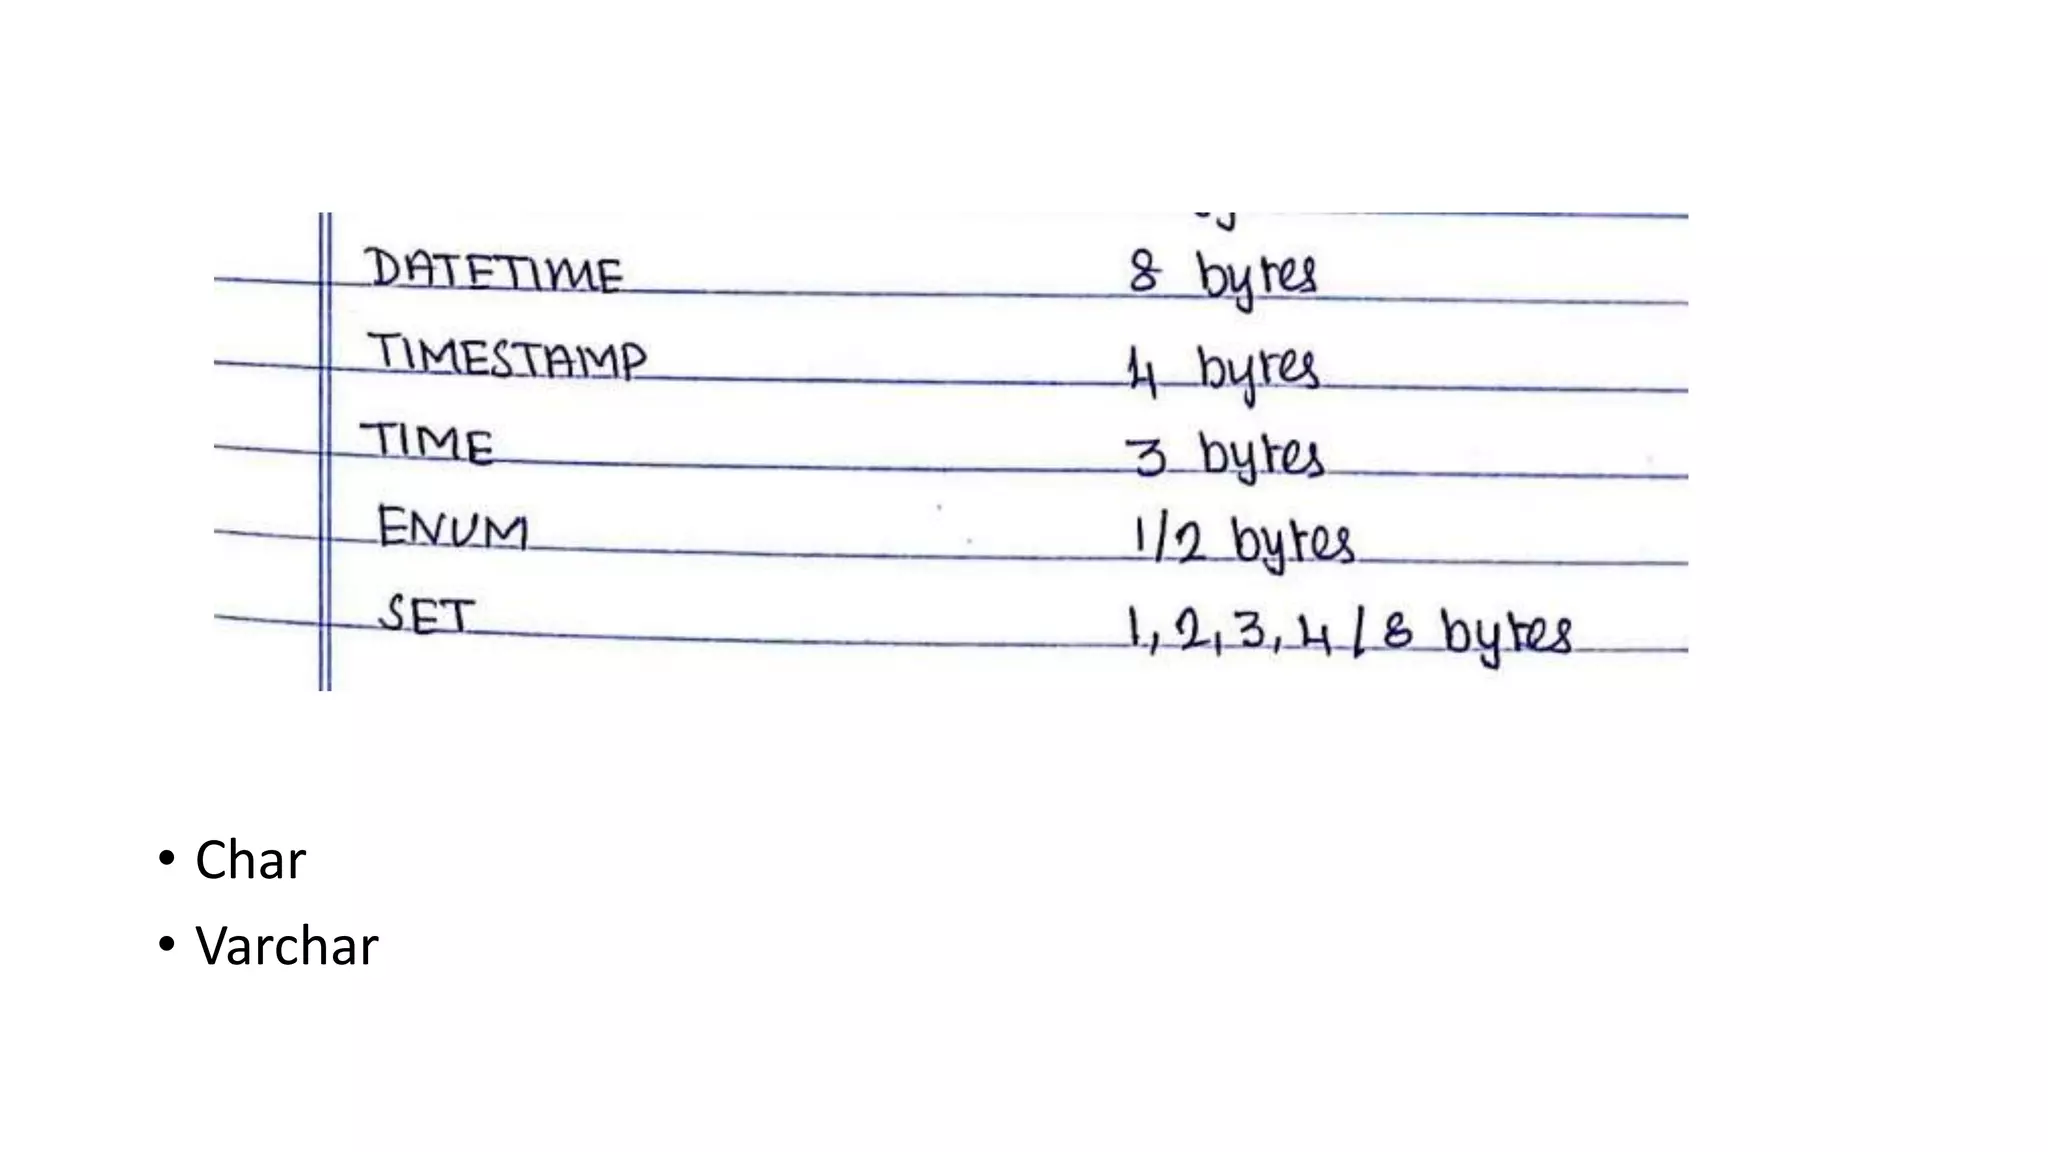 DATETIME 8 bytes
TIMESTAMP 4 bytes
TIME 3 bytes
ENUM 1/2 bytes
SET 1, 2, 3, 4 / 8 bytes
• Char
• Varchar